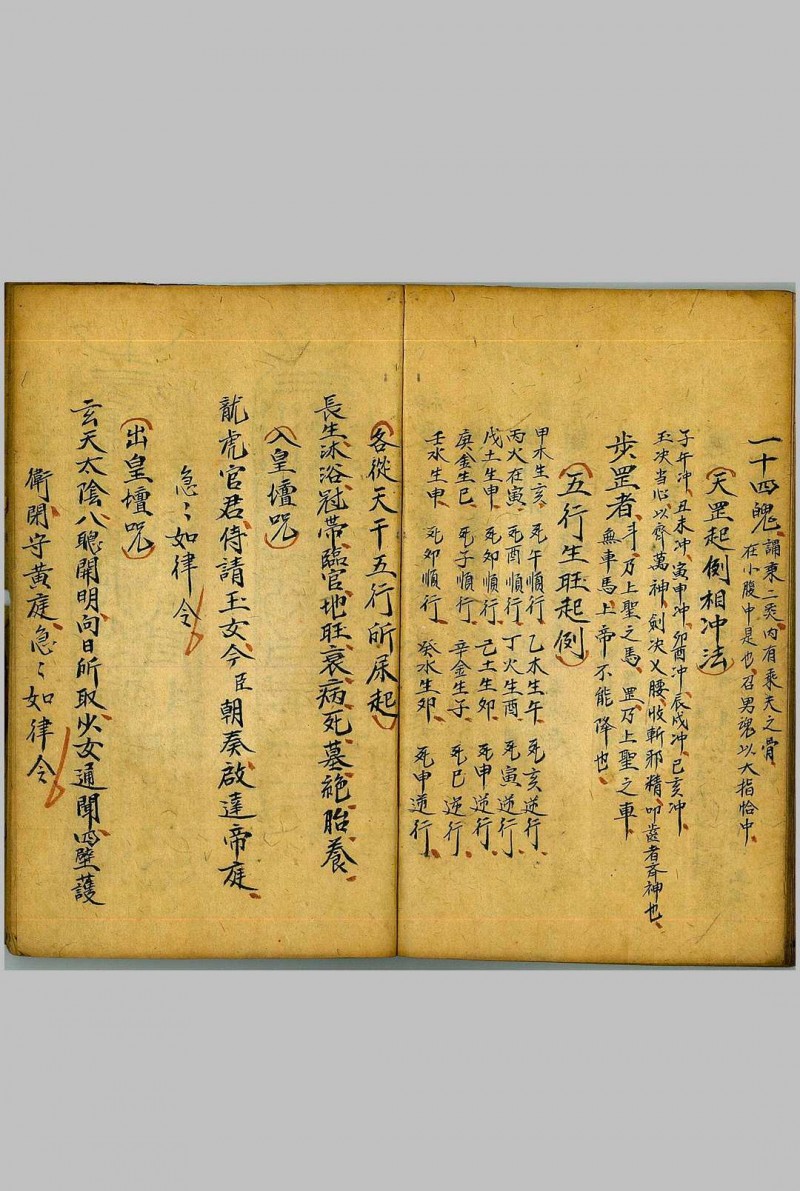 一十四魄 誦東二炁內有乘天之骨
在小腹中是也召男魂以大指恰中
天罡起例相冲法
子午冲丑未冲寅申冲卯酉冲辰戌冲巳亥冲
玉决当心以齊萬神劍决乂腰收斬邪精叩齒者斉神也
步罡者 斗乃上聖之馬 罡乃上聖之車
無車馬上帝不能降也
五行生旺起例
甲木生亥 死午順行 乙木生午 死亥逆行
丙火在寅 死酉順行 丁火生酉 死寅逆行
戊土生申 死卯順行 己土生卯 死申逆行
庚金生巳 死子順行 辛金生子 死巳逆行
壬水生申 死卯順行 癸水生卯 死申逆行
各從天干五行所屎起
長生沐浴冠帶臨官地旺衰病死墓絕胎養
入皇壇咒
龍虎官君侍請玉女令臣朝奏啟達帝庭
急〻如律令
出皇壇咒
玄天太陰八聰開明向日所取少女通聞四壁護
衛閉守黃庭急〻如律令